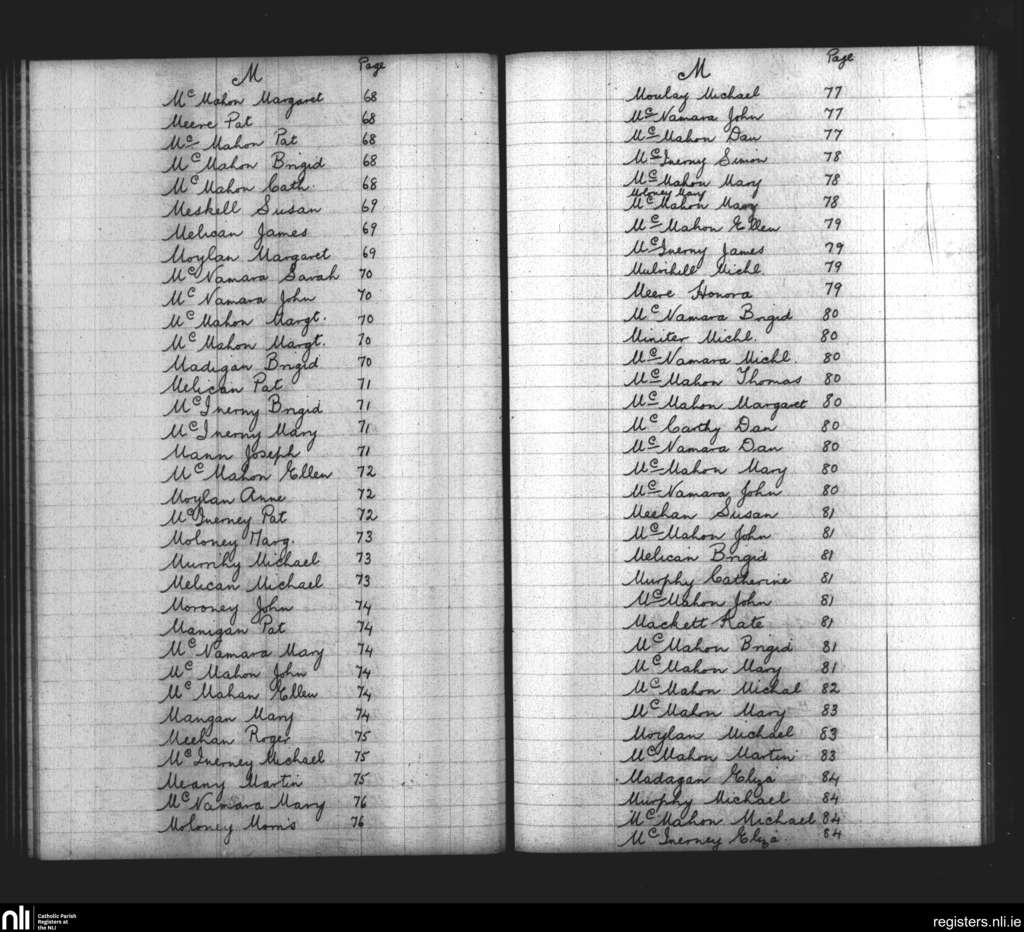 M Page
McMahon Margaret 68
Meere Pat 68
McMahon Pat 68
McMahon Brigid 68
McMahon Cath. 68
Meskell Susan 69
Melican James 69
Moylan Margaret 69
McNamara Sarah 70
McNamara John 70
McMahon Margt. 70
McMahon Margt. 70
Madigan Brigid 70
Melican Pat 71
McInerny Brigid 71
McInerny Mary 71
Mann Joseph 71
McMahon Ellen 72
Moylan Anne 72
McInerney Pat 72
Moloney Marg. 73
Murrihy Michael 73
Melican Michael 73
Moroney John 74
Manigan Pat 74
McNamara Mary 74
McMahon John 74
McMahan Ellen 74
Mangan Mary 74
Meehan Roger 75
McInerney Michael 75
Meany Martin 75
McNamara Mary 76
Moloney Morris 76
M Page
Moulay Michael 77
McNamara John 77
McMahon Dan 77
McInerny Simon 78
McMahon Mary 78
Moloney Mary
McMahon Mary 78
McMahon Ellen 79
McInerny James 79
Mulvihill Michl. 79
Meere Honora 79
McNamara Brigid 80
Miniter Michl. 80
McNamara Michl. 80
McMahon Thomas 80
McMahon Margaret 80
McCarthy Dan 80
McNamara Dan 80
McMahon Mary 80
McNamara John 80
Meehan Susan 81
McMahon John 81
Melican Brigid 81
Murphy Catherine 81
McMahon John 81
Mackett Kate 81
McMahon Brigid 81
McMahon Mary 81
McMahon Michal 82
McMahon Mary 83
Moylan Michael 83
McMahon Martin 83
Madagan Eliza 84
Murphy Michael 84
McMahon Michael 84
McInerney Eliza 84
nli Catholic Parish
Registers at
the NLI
registers.nli.ie